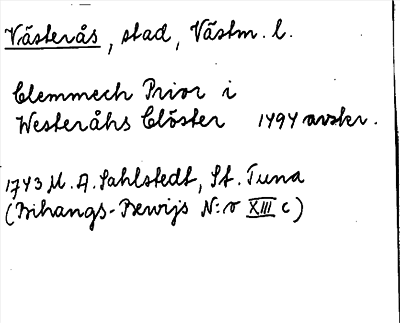 Västerås, stad, Västm. l.
Clemmech Prior i
Westeråhs Clöster 1494 avskr.
1743 M. A. Sahlstedt, St. Tuna
(Bihangs-Bewijs N:o XIII c)